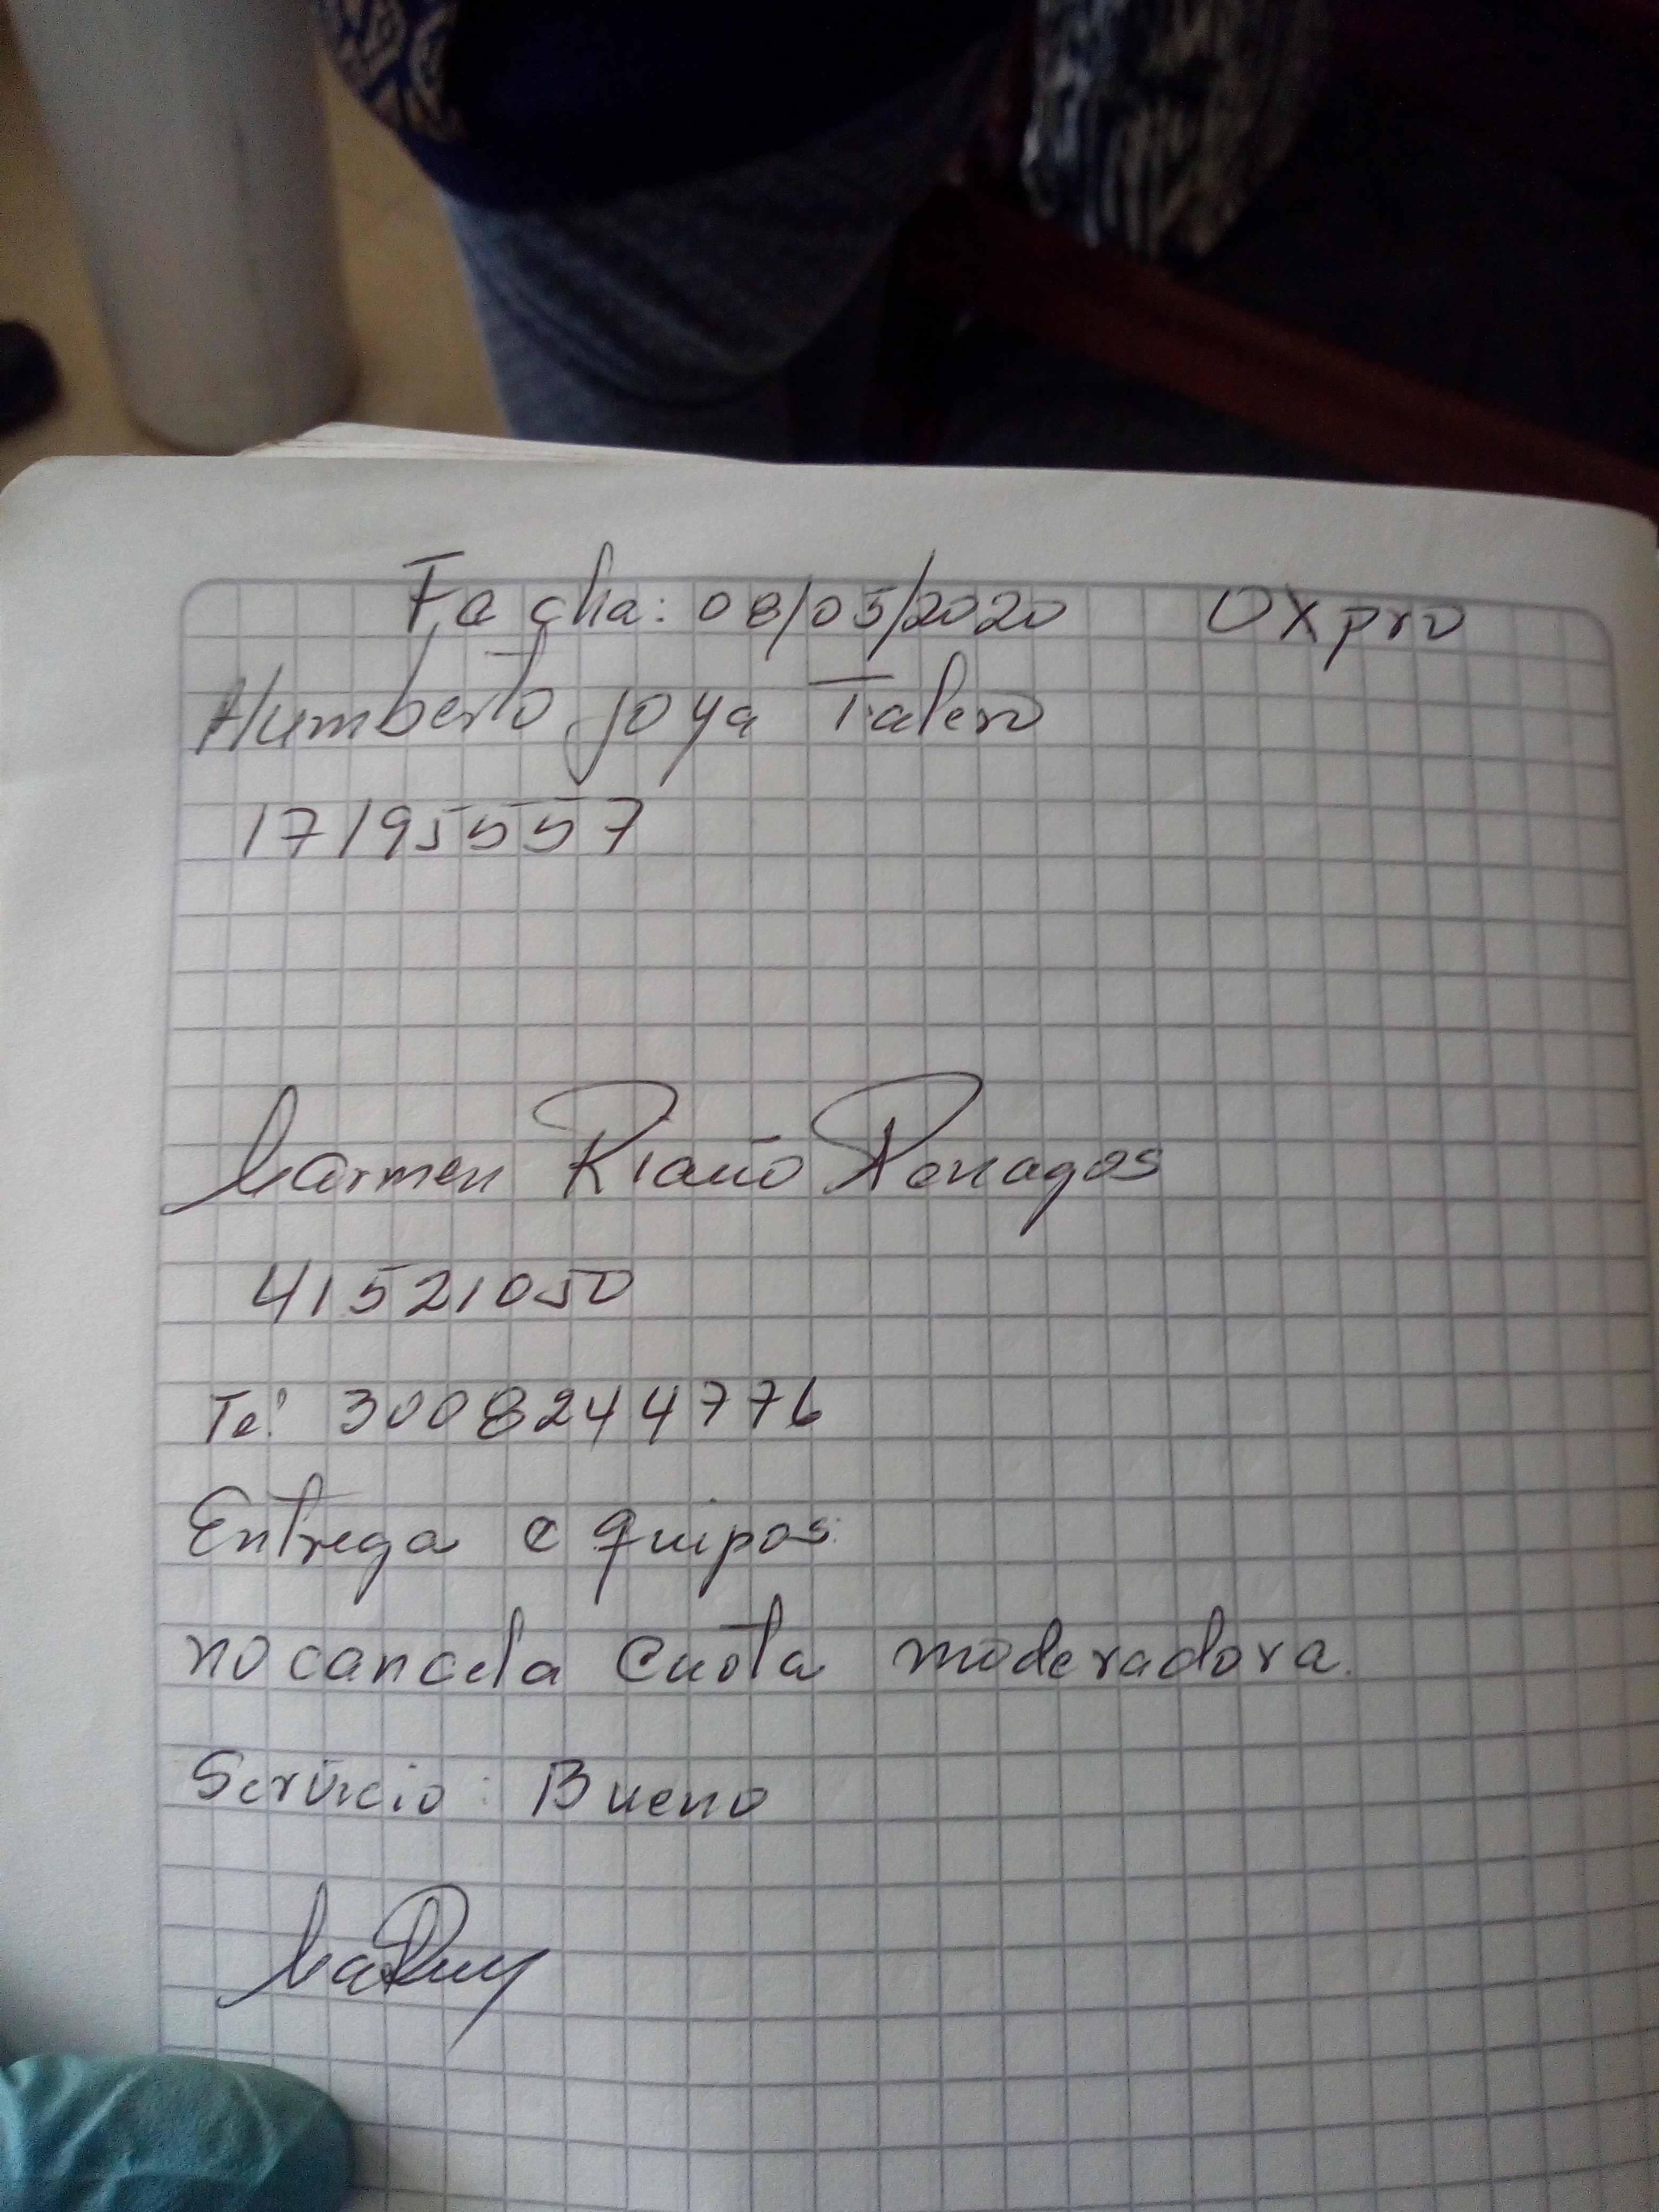 Fecha: 08/05/2020 OXpro
Humberto Joya Talero
17195557
Carmen Riaño Penagos
41521050
Tel 3008244776
Entrega equipos
no cancela cuota moderadora.
Servicio: Bueno